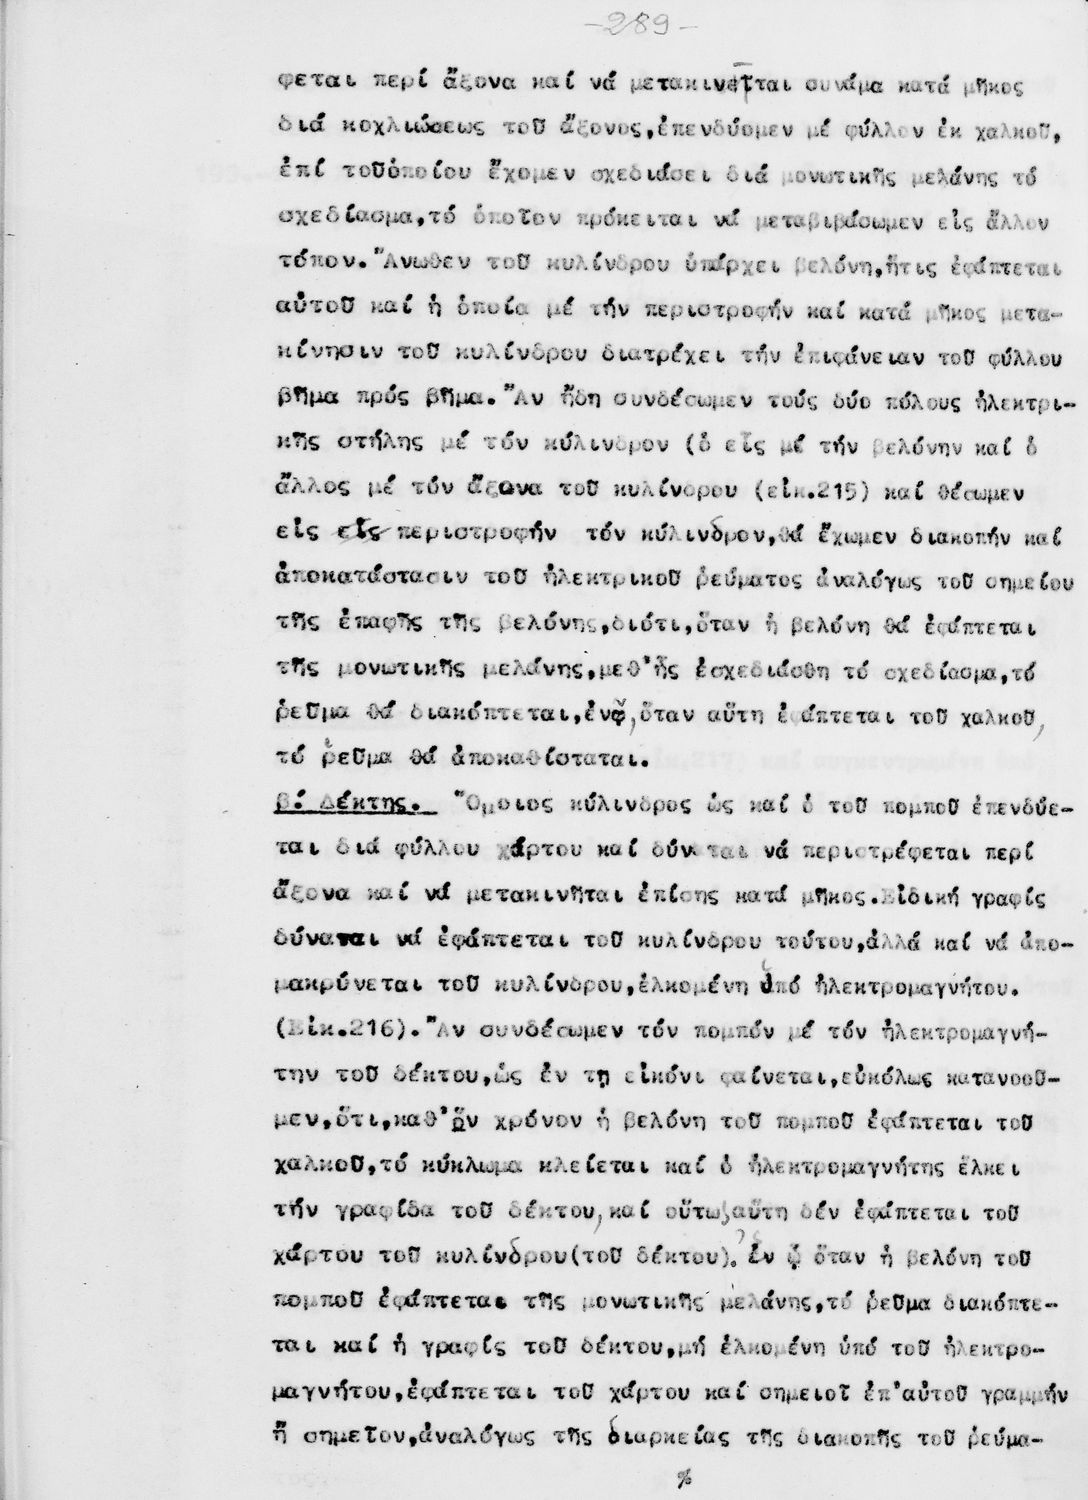 -289-
φεται περί ἄξονα καί νά μετακινῆται συνάμα κατά μῆκος
διά κοχλιώσεως τοῦ ἄξονος,ἐπενδύομεν μέ φύλλον ἐκ χαλκοῦ,
ἐπί τοῦὁποίου ἔχομεν σχεδιάσει διά μονωτικῆς μελάνης τό
σχεδίασμα,τό ὁποῖον πρόκειται νά μεταβιβάσωμεν εἰς ἄλλον
τόπον. Ἄνωθεν τοῦ κυλίνδρου ὑπάρχει βελόνη,ἥτις ἐφάπτεται
αὐτοῦ καί ἡ ὁποία μέ τήν περιστροφήν καί κατά μῆκος μετα-
κίνησιν τοῦ κυλίνδρου διατρέχει τήν ἐπιφάνειαν τοῦ φύλλου
βῆμα πρός βῆμα. Ἄν ἤδη συνδέσωμεν τούς δύο πόλους ἠλεκτρι-
κῆς στήλης μέ τόν κύλινδρον (ὁ εἷς μέ τήν βελόνην καί ὁ
ἄλλος μέ τόν ἄξονα τοῦ κυλίνδρου (εἰκ.215) καί θέσωμεν
εἰς περιστροφήν τόν κύλινδρον,θά ἔχωμεν διακοπήν καί
ἀποκατάστασιν τοῦ ἠλεκτρικοῦ ῥεύματος ἀναλόγως τοῦ σημείου
τῆς ἐπαφῆς τῆς βελόνης,διότι,ὅταν ἡ βελόνη θά ἐφάπτεται
τῆς μονωτικῆς μελάνης,μεθ'ἧς ἐσχεδιάσθη τό σχεδίασμα,τό
ῥεῦμα θά διακόπτεται,ἐνῷ,ὅταν αὕτη ἐφάπτεται τοῦ χαλκοῦ,
τό ῥεῦμα θά ἀποκαθίσταται.
β! Δέκτης. Ὅμοιος κύλινδρος ὡς καί ὁ τοῦ πομποῦ ἐπενδύε-
ται διά φύλλου χάρτου καί δύναται νά περιστρέφεται περί
ἄξονα καί νά μετακινῆται ἐπίσης κατά μῆκος.Εἰδική γραφίς
δύναται νά ἐφάπτεται τοῦ κυλίνδρου τούτου,ἀλλά καί νά ἀπο-
μακρύνεται τοῦ κυλίνδρου,ἑλκομένη ὑπό ἠλεκτρομαγνήτου.
(Εἰκ.216). Ἄν συνδέσωμεν τόν πομπόν μέ τόν ἠλεκτρομαγνή-
την τοῦ δέκτου,ὡς ἐν τῃ εἰκόνι φαίνεται,εὐκόλως κατανοοῦ-
μεν,ὅτι,καθ'ὅν χρόνον ἡ βελόνη τοῦ πομποῦ ἐφάπτεται τοῦ
χαλκοῦ,τό κύκλωμα κλείεται καί ὁ ἠλεκτρομαγνήτης ἕλκει
τήν γραφίδα τοῦ δέκτου,καί οὕτως αὕτη δέν ἐφάπτεται τοῦ
χάρτου τοῦ κυλίνδρου(τοῦ δέκτου). ἐν ᾧ ὅταν ἡ βελόνη τοῦ
πομποῦ ἐφάπτεται τῆς μονωτικῆς μελάνης,τό ῥεῦμα διακόπτε-
ται καί ἡ γραφίς τοῦ δέκτου,μή ἑλκομένη ὑπό τοῦ ἠλεκτρο-
μαγνήτου,ἐφάπτεται τοῦ χάρτου καί σημειοῖ ἐπ'αὐτοῦ γραμμήν
ἤ σημεῖον,ἀναλόγως τῆς διαρκείας τῆς διακοπῆς τοῦ ῥεύμα-
%